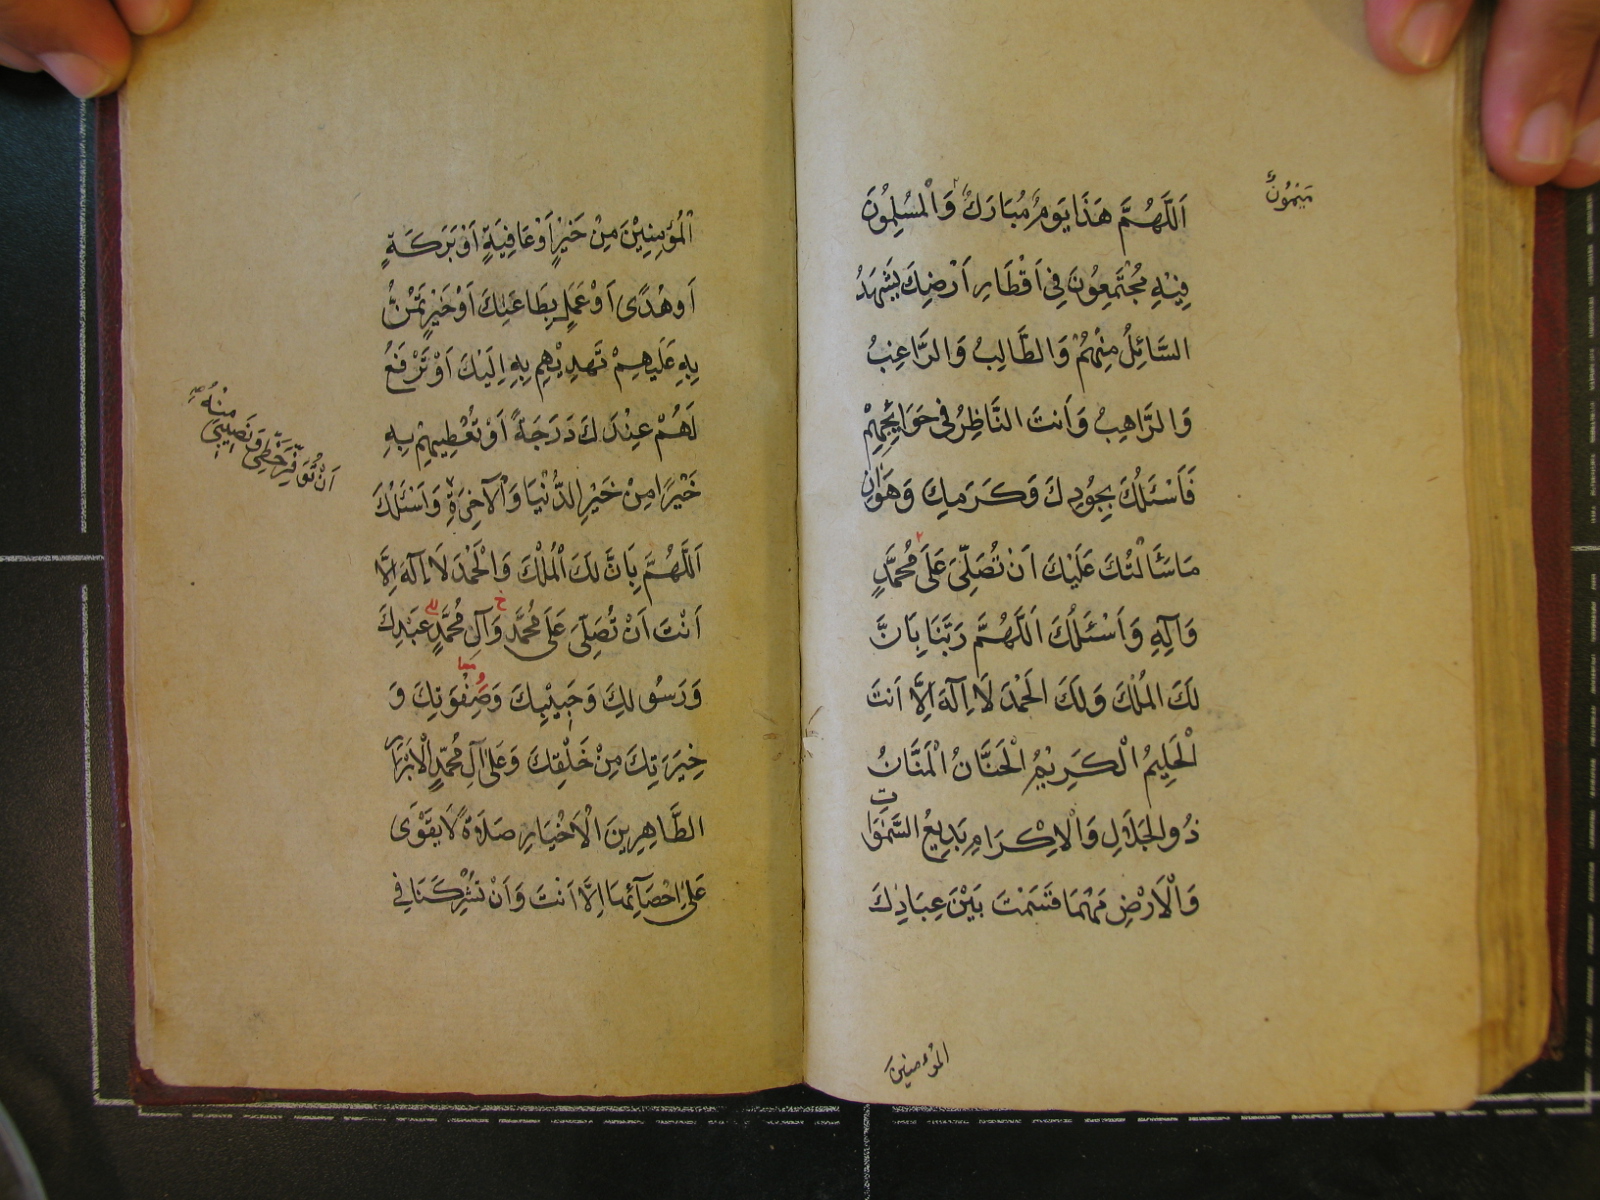 مَيْمُونٌ
اَللَّهُمَّ هَذَا يَوْمٌ مُبَارَكٌ وَالْمُسْلِمُونَ
فِيْهِ مُجْتَمِعُونَ فِى اَقْطَارِ اَرْضِكَ يَشْهَدُ
السَّائِلُ مِنْهُمْ وَالطَّالِبُ وَالرَّاغِبُ
وَالرَّاهِبُ وَاَنتَ النَّاظِرُ فى حَوَايِجِهِمْ
فَاَسْئَلُكَ بِجُودِكَ وَكَرَمِكِ وَهَوَانِ
مَا سَاَلْتُكَ عَلَيْكَ اَنْ تُصَلِّىَ عَلَى مُحَمَّدٍ
وَآلِهِ وَاَسْئَلُكَ اَللَّهُمَّ رَبَّنَا بِاَنَّ
لَكَ المُلْكَ وَلَكَ الَحمْدَ لَا اِلَهَ اِلَّا اَنتَ
الْحَلِيمُ الْكَرِيْمُ الْحَنَّانُ الْمَنَّانُ
ذُو الجَلَالِ وَالْاِكْرَامِ بَدِيعُ السَّمٰوَاتِ
وَالْاَرْضِ مَهْمَا قَسَمْتَ بَيْنَ عِبَادِكَ
المؤمنين
الْمُؤمِنِيْنَ مِنْ خَيْرٍ اَوْ عَافِيَةٍ اَوْ بَرَكَةٍ
اَو هُدًى اَوْ عَمَلٍ بِطَاعَتِكَ اَوْ خَيْرٍ تَمُنُّ
بِهِ عَلَيهِمْ تَهدِيْهِم بِهِ اِلَيْكَ اَوْ تَرْفَعُ
لَهُمْ عِنْدَكَ دَرَجَةً اَوْ تُعْطِيهِمْ بِهِ
خَيْرًا مِنْ خَيْرِ الدُّنْيَا وَالْآخِرَةِ وَاَسْئَلُكَ
اَنْ تُوَفِّرَ حَظِّى وَنَصِيْبِى مِنْهُ
اَللَّهُمَّ بِاَنَّ لَكَ الْمُلْكَ وَالْحَمْدَ لَا اِلَهَ اِلَّا
اَنْتَ اَنْ تُصَلِّىَ عَلَى مُحَمَّدٍ وَآلِ مُحَمَّدٍ عَبْدِكَ
وَرَسُولِكَ وَحَبِيْبِكَ وَصِفْوَتِكَ وَ
خِيَرَتِكَ مِنْ خَلْقِكَ وَعَلى آلِ مُحَمَّدٍ الْاَبْرَارِ
الطَّاهِرِينَ الْاَخْيَارِ صَلَاةً لَا يَقْوَى
عَلىٰ اِحْصَآئِهَا اِلَّا اَنْتَ وَاَنْ تُشْرِكَنَا فِي